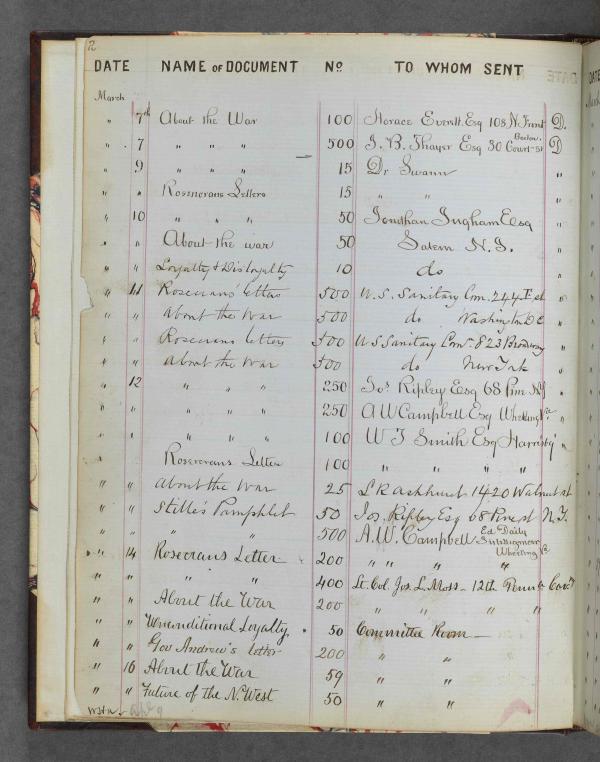 2
DATE NAME OF DOCUMENT No. TO WHOM SENT
March
" 7th About the War 100 Horace Everett. Esq 108 N. Front D.
" 7 " " " 500 J. B. Thayer Esq 30 Court-st Boston. D
" 9 " " " 15 Dr Swann "
" " Rosencrans Letters 15 " " "
" 10 " " " 50 Jonathan Ingham Esq "
" " About the war 50 Salem N.J. "
" " Loyalty & Disloyalty 10 do "
" 11 Rosecrans' letters 500 U.S. Sanitary Com. 244 F st "
" " About the War 500 do Washington D.C "
" " Rosecrans letters 500 U S Sanitary Comn. 823 Broadway "
" " About the War 500 do New York "
" 12 " " " 250 Jos Ripley Esq 68 Pine NY "
" " " " " 250 A W Campbell Esq Wheeling Va "
" " " " " 100 W T Smith Esq Harrisbg "
" " Rosecrans Letter 100 " " " "
" " About the War 25 L R Ashhurst 1420 Walnut st
" " Stille's Pamphlet 50 Jos. Ripley Esq 68 Pine st N.Y.
" " " " 500 A. W. Campbell Ed. Daily Intelligencer Wheeling Va
" 14 Rosecrans Letter 200 " " " "
" " " " 400 Lt. Col. Jos. L. Moss. 12th Penna Cavy
" " About the War 200 " " " "
" " Unconditional Loyalty. 50 Committee Room
" " Gov Andrew's letter 200 " "
" 16 About the War 59 " "
" " Future of the N. West 50 " "